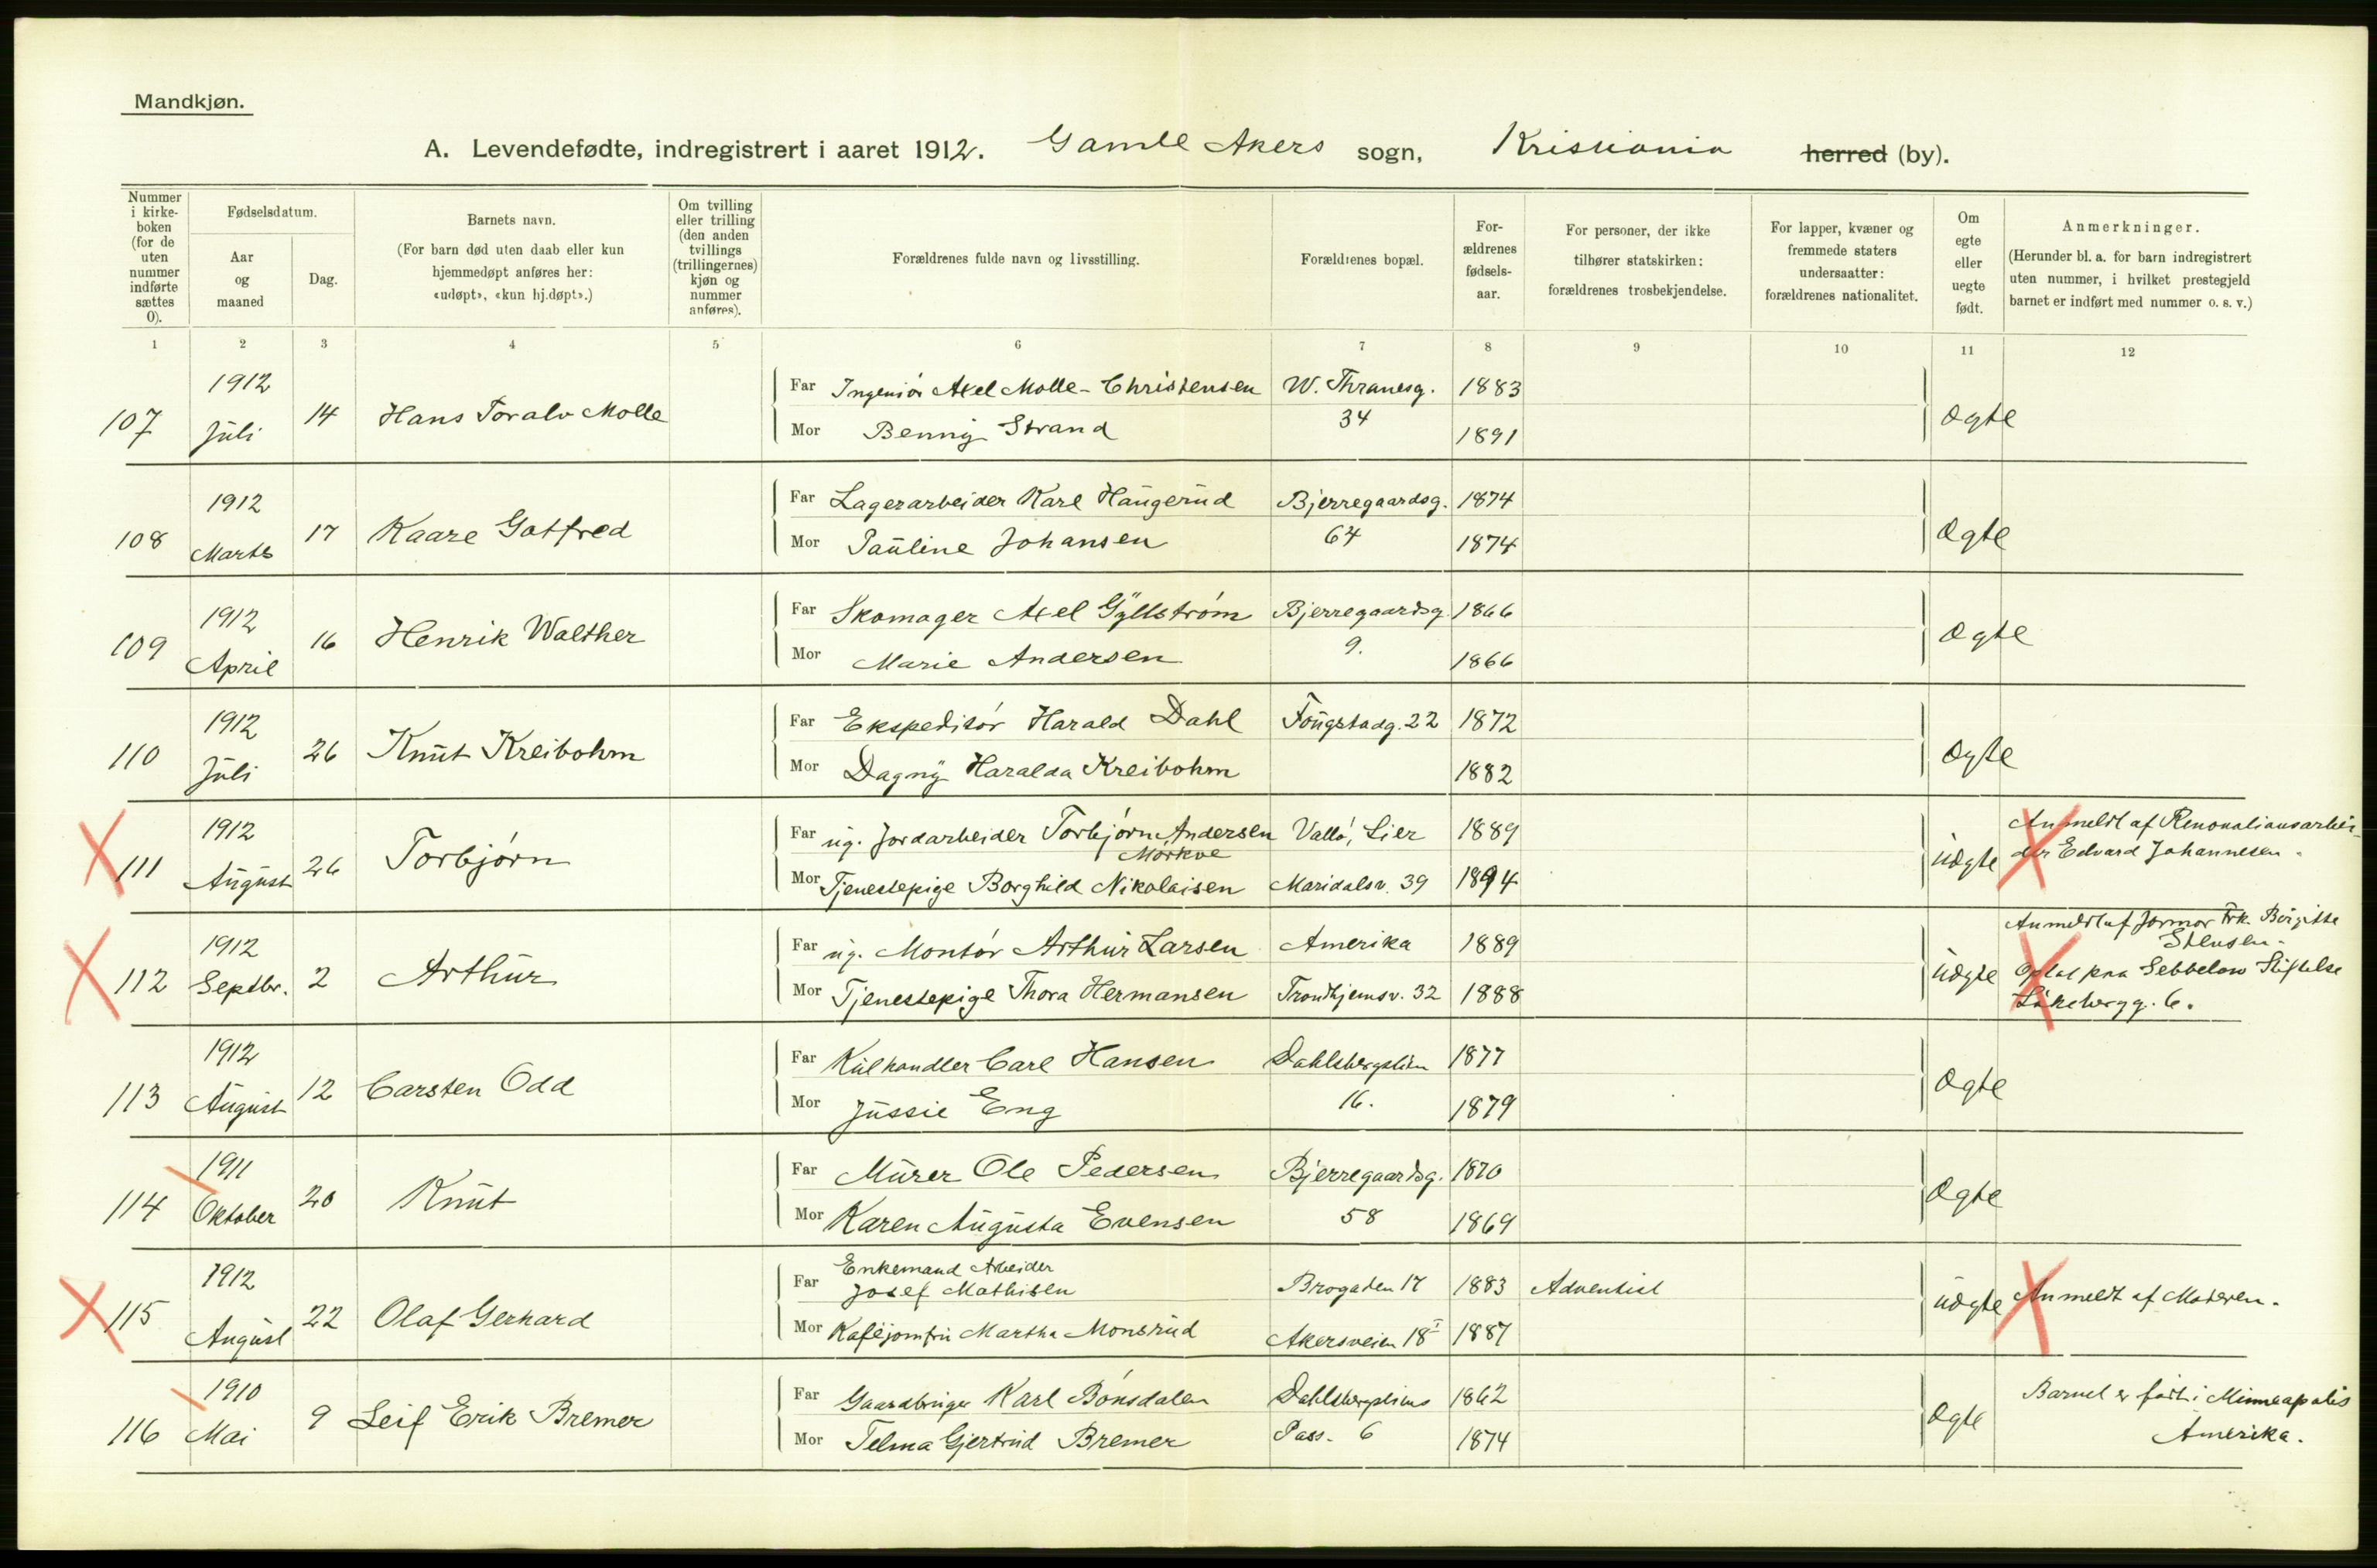 Mandkjøn.
A. Levendefødte, indregistrert i aaret 1912. Gamle Akers sogn, Kristiania herred (by).
Nummer i kirke-boken (for de uten nummer indførte sættes 0).
Fødselsdatum.
Aar og maaned
Dag.
Barnets navn.
(For barn død uten daab eller kun hjemmedøpt anføres her: «udøpt», «kun hj.døpt».)
Om tvilling eller trilling (den anden tvillings (trillingernes) kjøn og nummer anføres).
Forældrenes fulde navn og livsstilling.
Forældrenes bopæl.
For-ældrenes fødsels-aar.
For personer, der ikke tilhører statskirken: forældrenes trosbekjendelse.
For lapper, kvæner og fremmede staters undersaatter: forældrenes nationalitet.
Om egte eller uegte født.
Anmerkninger.
(Herunder bl. a. for barn indregistrert uten nummer, i hvilket prestegjeld barnet er indført med nummer o. s. v.)
1 2 3 4 5 6 7 8 9 10 11 12
107 1912 Juli 14 Hans Toralv Molle
Far Ingeniør Axel Molle-Christensen W. Thranesg. 34 1883
Mor Benny Strand 1891
Ægte
108 1912 Marts 17 Kaare Gotfred
Far Lagerarbeider Karl Haugerud Bjerregaardsg. 64 1874
Mor Pauline Johansen 1874
Ægte
109 1912 April 16 Henrik Walther
Far Skomager Axel Gyllstrøm Bjerregaardsg. 9. 1866
Mor Marie Andersen 1866
Ægte
110 1912 Juli 26 Knut Kreibohm
Far Ekspeditør Harald Dahl Fougstadg. 22 1872
Mor Dagny Haralda Kreibohm 1882
Ægte
111 1912 August 26 Torbjørn
Far ug. Jordarbeider Torbjørn Andersen Mørkve Vallø, Lier 1889
Mor Tjenestepige Borghild Nikolaisen Maridalsv. 39 1894
uægte
Anmeldt af Renovationsarbei-
der Edvard Johannesen.
112 1912 Septbr. 2 Arthur
Far ug. Montør Arthur Larsen Amerika 1889
Mor Tjenestepige Thora Hermansen Trondhjemsv. 32 1888
uægte
Anmeldt af Jormor Frk. Birgitte
Stensen.
Optat paa Sebbelow Stiftelse
Løkebergg. 6.
113 1912 August 12 Carsten Odd
Far Kulhandler Carl Hansen Dahlsbergstien 16. 1877
Mor Jussie Eng 1879
Ægte
114 1911 Oktober 20 Knut
Far Murer Ole Pedersen Bjerregaardsg. 58 1870
Mor Karen Augusta Evensen 1869
Ægte
115 1912 August 22 Olaf Gerhard
Far Enkemand Arbeider Josef Mathisen Brogaten 17 1883 Adventist
Mor Kaféjomfru Martha Monsrud Akersveien 18 I 1887
uægte
Anmeldt af Moderen.
116 1910 Mai 9 Leif Erik Bremer
Far Gaardbruger Karl Bonsdalen Dahlsbergstiens Pass. 6 1862
Mor Telma Gjertrud Bremer 1874
Ægte
Barnet er født i Minneapolis
Amerika.